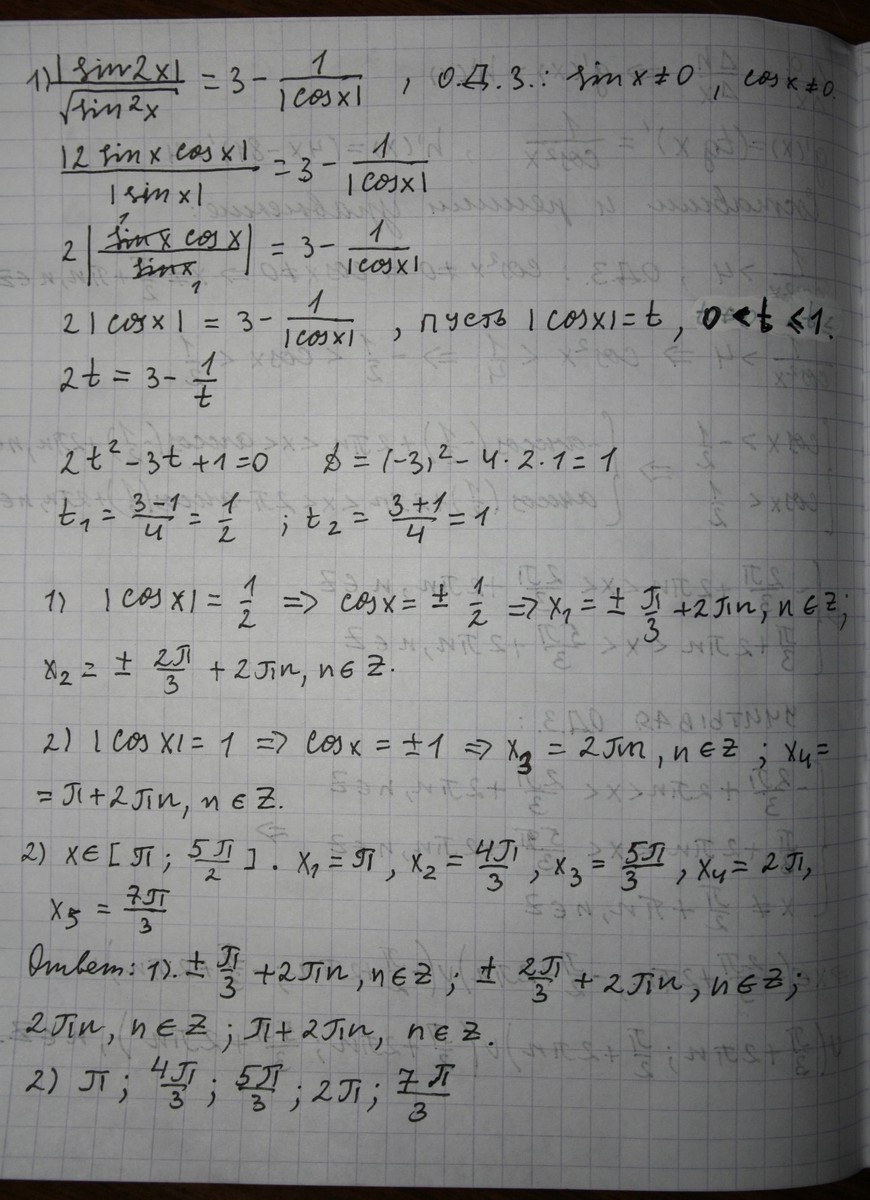 1) |sin2x| / √sin²x = 3 - 1/|cosx| , О.Д.З.: sinx≠0, cosx≠0.
|2 sinx cosx| / |sinx| = 3 - 1/|cosx|
2 | sinx cosx / sinx | = 3 - 1/|cosx|
2|cosx| = 3 - 1/|cosx| , пусть |cosx|=t, 0<t≤1.
2t = 3 - 1/t
2t² - 3t + 1 = 0 D = (-3)² - 4·2·1 = 1
t₁ = (3-1)/4 = 1/2 ; t₂ = (3+1)/4 = 1
1) |cosx| = 1/2 => cosx = ± 1/2 => x₁ = ± π/3 + 2πn, n∈Z;
x₂ = ± 2π/3 + 2πn, n∈Z.
2) |cosx| = 1 => cosx = ±1 => x₃ = 2πn, n∈Z; x₄ =
= π+2πn, n∈Z.
2) x∈[π; 5π/2]. x₁ = π, x₂ = 4π/3, x₃ = 5π/3, x₄ = 2π,
x₅ = 7π/3
Ответ: 1). ± π/3 + 2πn, n∈Z; ± 2π/3 + 2πn, n∈Z;
2πn, n∈Z; π+2πn, n∈Z.
2) π; 4π/3; 5π/3; 2π; 7π/3